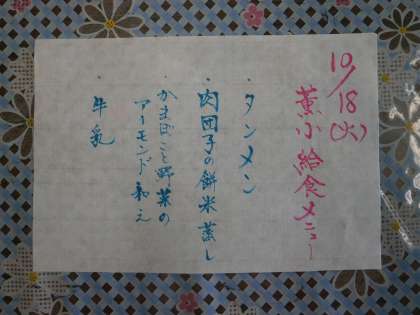 10/18(火)
薫小給食メニュー
・タンメン
・肉団子の餅米蒸し
・かまぼこと野菜の
アーモンド和え
・牛乳